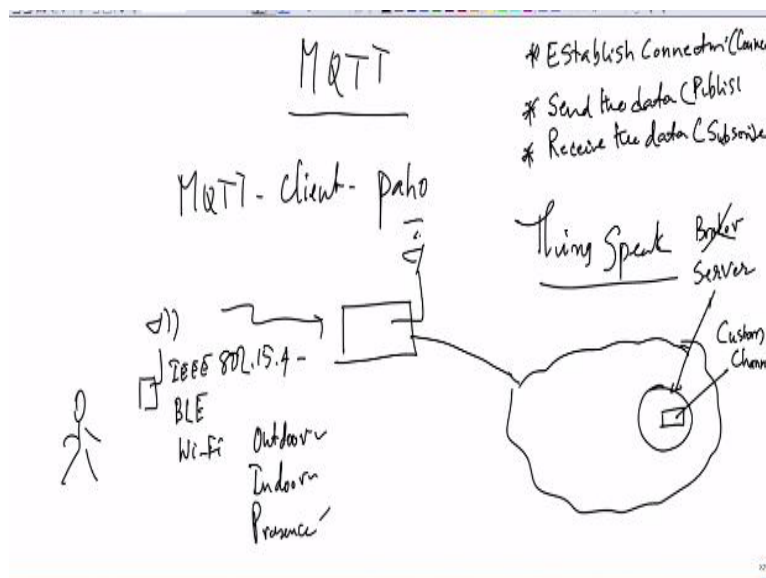 MQTT
* Establish Connectmi (Conne
* Send the data (Publisl
* Receive the data (Subscribe
MQTT - Client - paho
Thing Speak
Broker
Server
Custom
Chann
IEEE 802.15.4 -
BLE
Wi-fi
Outdoor
Indoor
Presence